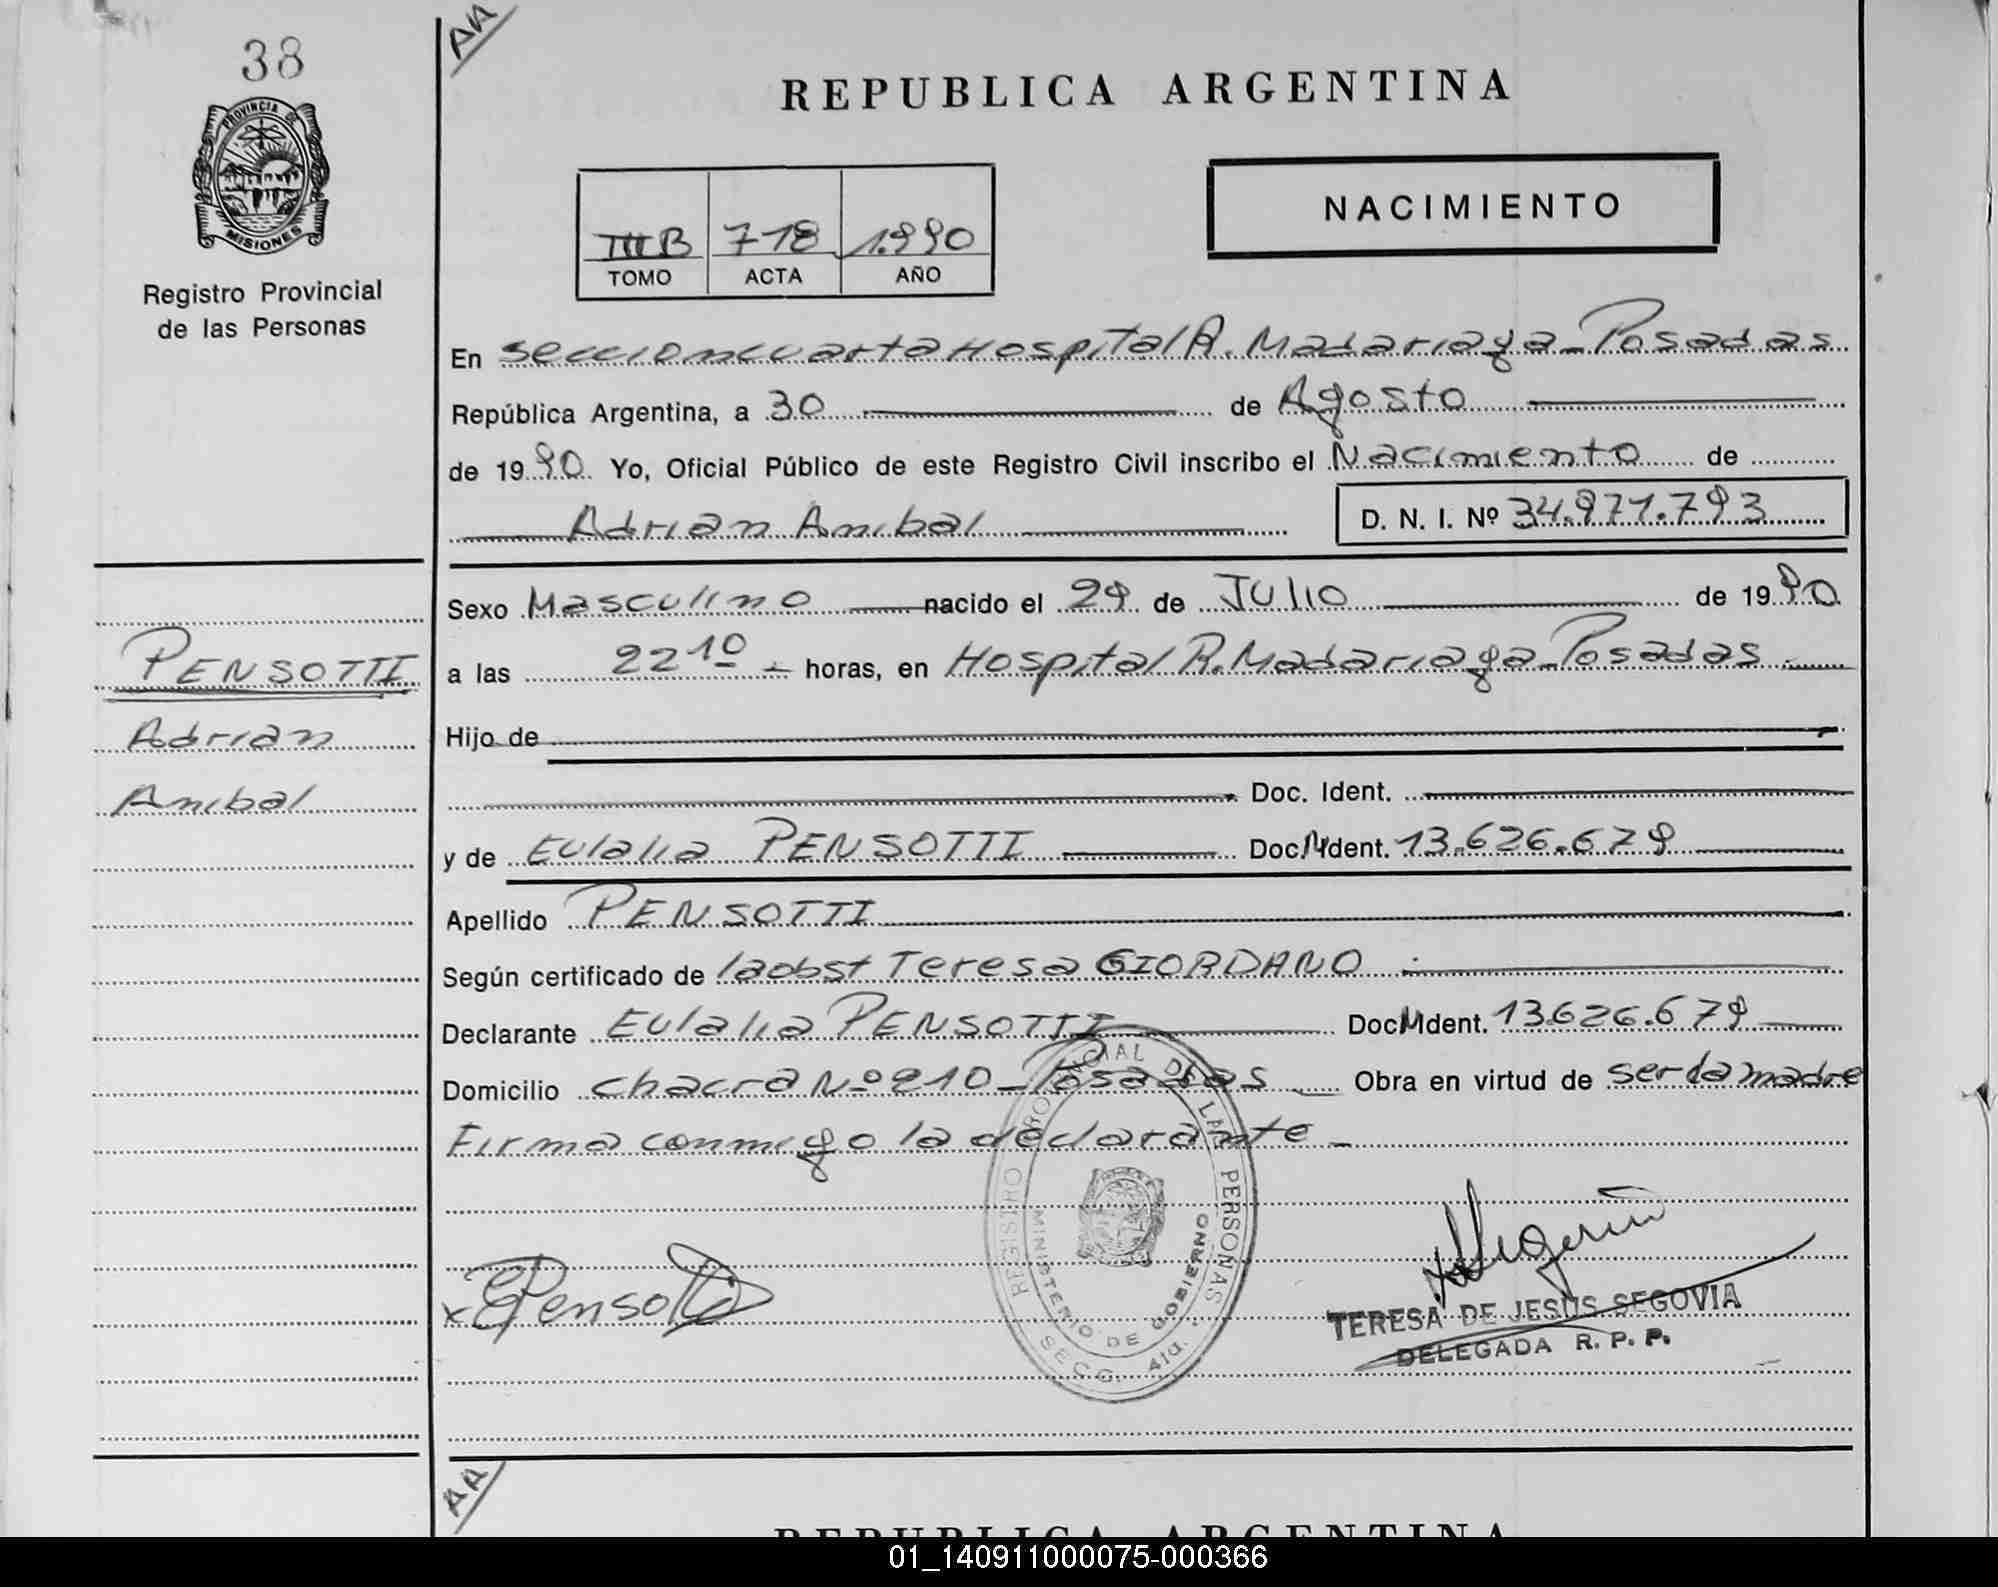 38
AA
REPUBLICA ARGENTINA
PROVINCIA DE
MISIONES
Registro Provincial
de las Personas
NACIMIENTO
III B 718 1.990
TOMO ACTA AÑO
En seccion cuarta Hospital R. Madariaga - Posadas
República Argentina, a 30 de Agosto
de 19 90 Yo, Oficial Público de este Registro Civil inscribo el Nacimiento de
Adrian Anibal D. N. I. Nº 34.971.793
Sexo Masculino nacido el 29 de JULIO de 19 90
a las 22 10 horas, en Hospital R. Madariaga - Posadas
Hijo de
Doc. Ident.
y de Eulalia PENSOTTI Doc. Ident. 13.626.679
Apellido PENSOTTI
Según certificado de la obst Teresa GIORDANO
Declarante Eulalia PENSOTTI Doc. Ident. 13.626.679
Domicilio chacra Nº 210 - Posadas Obra en virtud de ser la madre
Firma conmigo la declarante -
PENSOTTI
Adrian
Anibal
x EPensotti
REGISTRO PROVINCIAL DE LAS PERSONAS
MINISTERIO DE GOBIERNO
SECC. 4ta.
TERESA DE JESUS SEGOVIA
DELEGADA R. P. P.
AA
REPUBLICA ARGENTINA
01_140911000075-000366